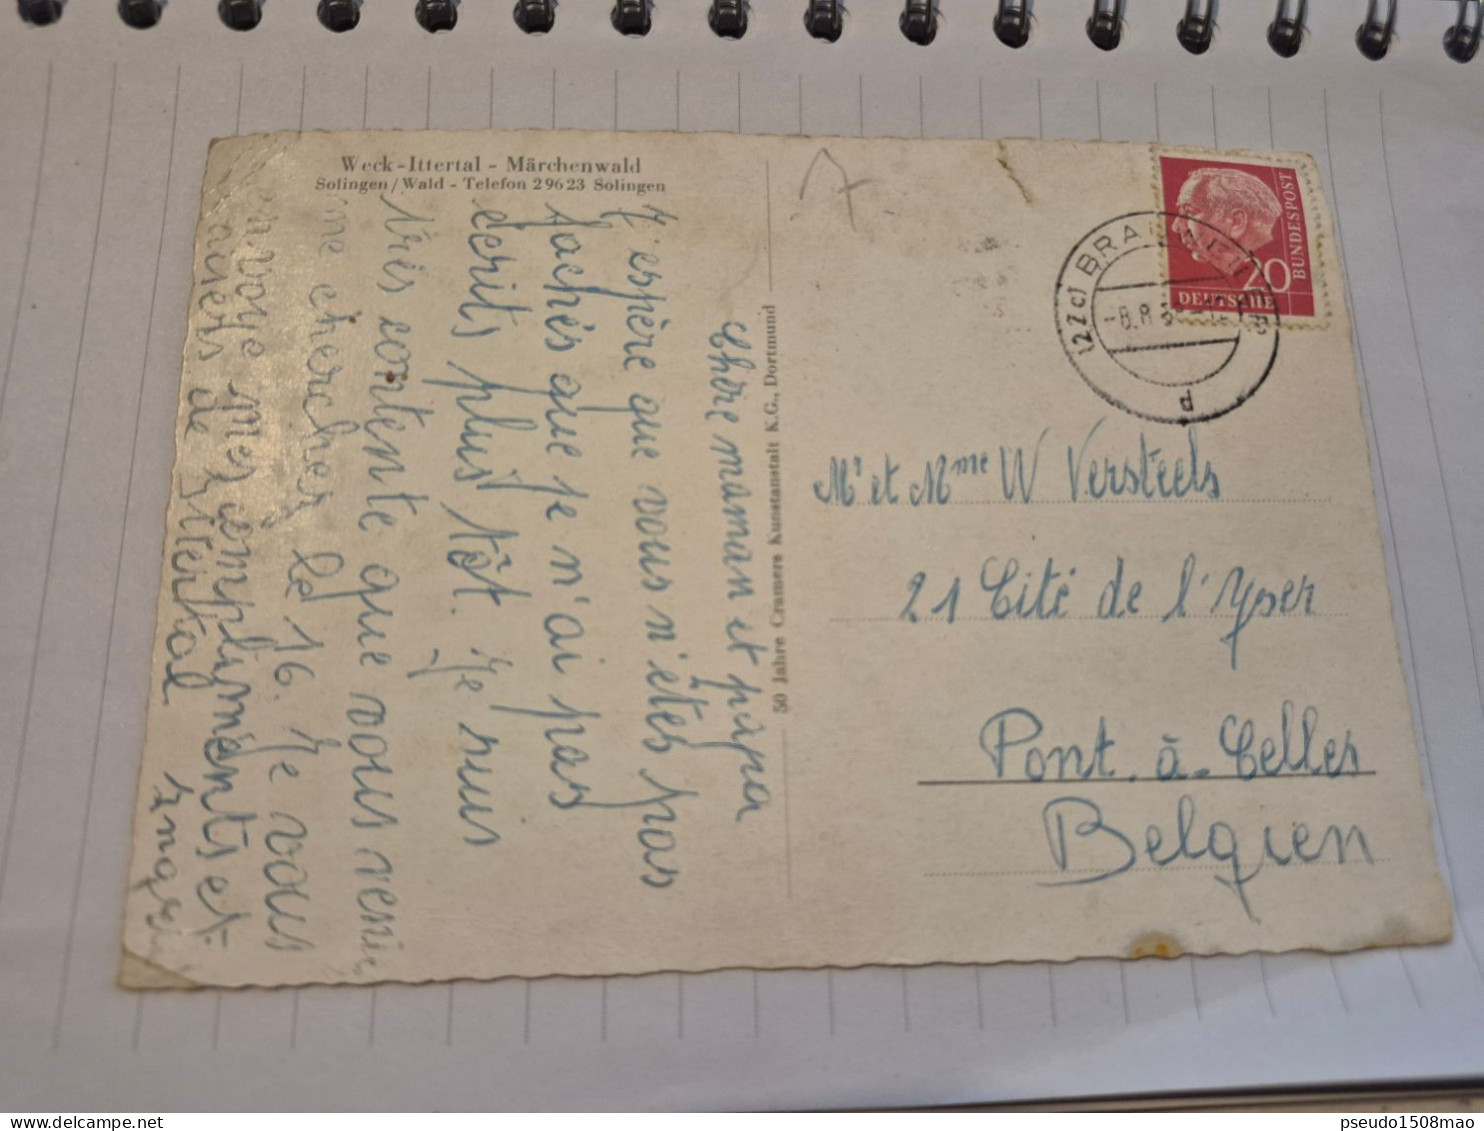 Weck-Ittertal - Märchenwald
Solingen/Wald - Telefon 29623 Solingen
Chère maman et papa
J'espère que vous n'êtes pas
fachés que je n'ai pas
écrits plus tôt. Je suis
très contente que vous
me chercher le 16. Je vous
envoye mes compliments et
de
50 Jahre Cramers Kunstanstalt K.G., Dortmund
7
20
DEUTSCHE
BUNDESPOST
(22c)
-8.8.
d
Mr et Mme W Versteels
21 Cité de l'Yser
Pont-à-Celles
Belgien
pseudo1508mao